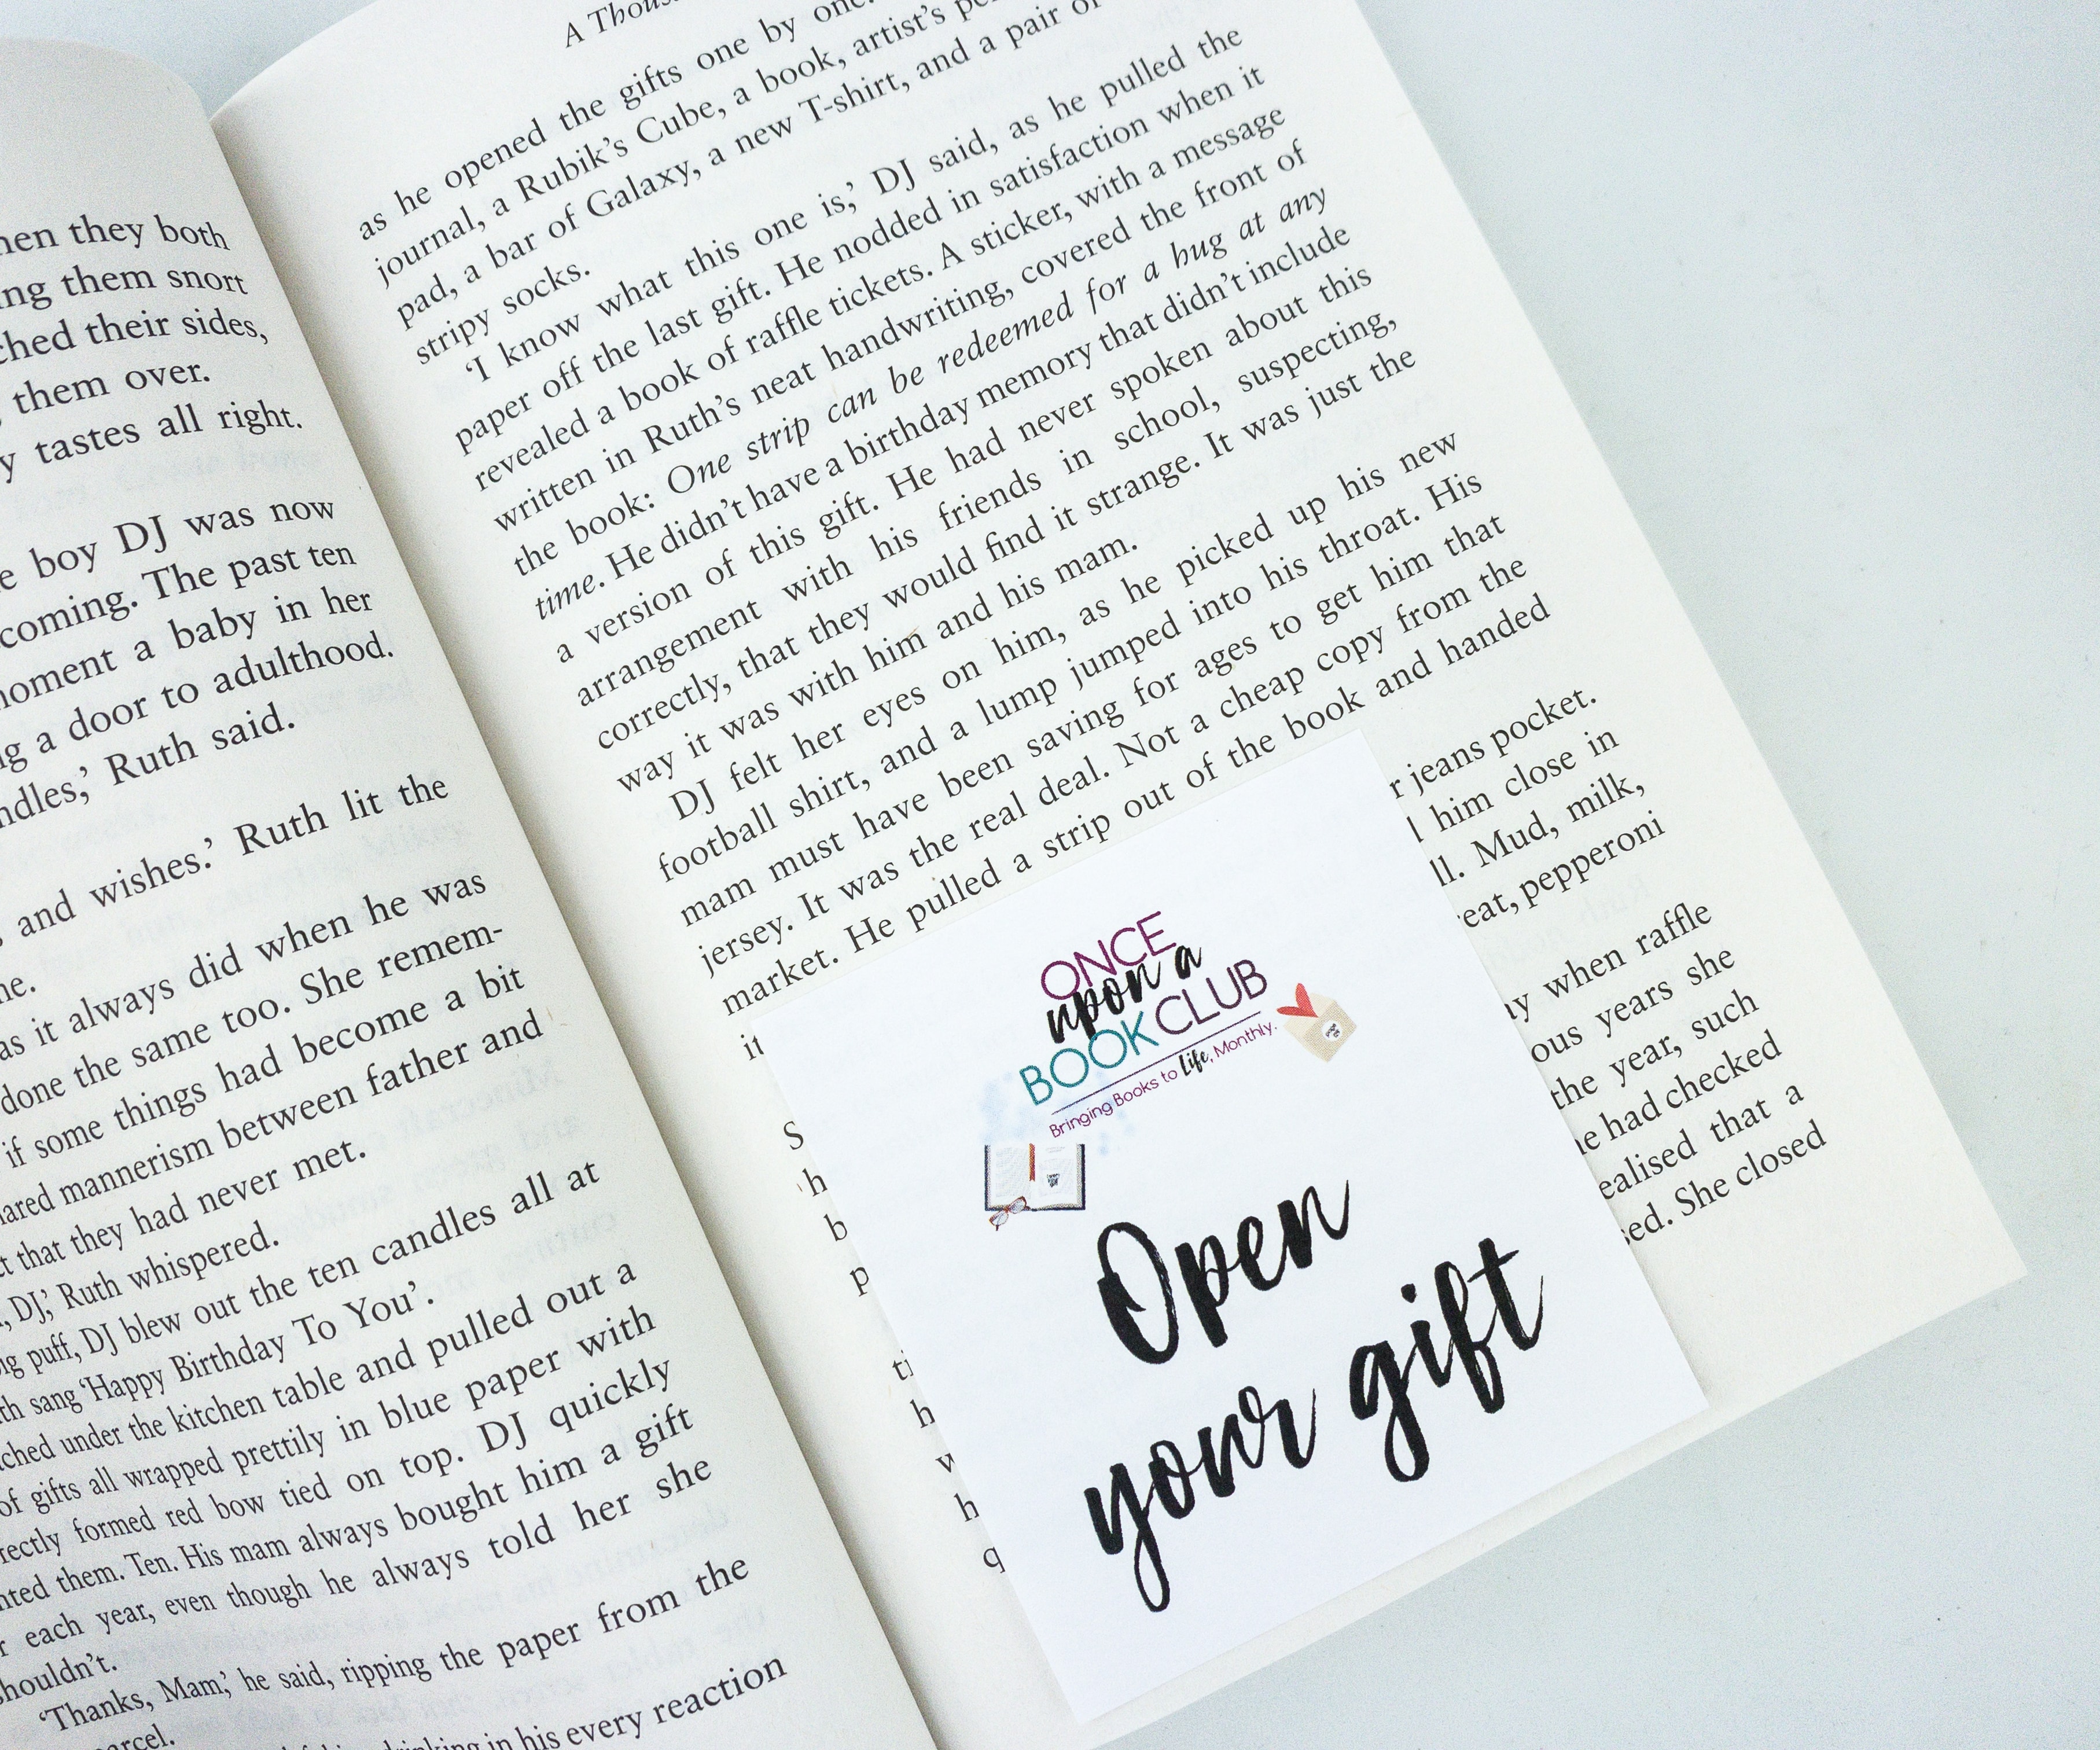 hen they both
ing them snort
ched their sides,
them over.
y tastes all right.
e boy DJ was now
coming. The past ten
moment a baby in her
ng a door to adulthood.
ndles,' Ruth said.
and wishes.' Ruth lit the
ne.
as it always did when he was
done the same too. She remem-
if some things had become a bit
ared mannerism between father and
t that they had never met.
, DJ,' Ruth whispered.
ig puff, DJ blew out the ten candles all at
th sang 'Happy Birthday To You'.
ched under the kitchen table and pulled out a
of gifts all wrapped prettily in blue paper with
rectly formed red bow tied on top. DJ quickly
nted them. Ten. His mam always bought him a gift
r each year, even though he always told her she
houldn't.
'Thanks, Mam,' he said, ripping the paper from the
arcel.
drinking in his every reaction
A Thous
as he opened the gifts one by one.
journal, a Rubik's Cube, a book, artist's pe
pad, a bar of Galaxy, a new T-shirt, and a pair of
stripy socks.
'I know what this one is,' DJ said, as he pulled the
paper off the last gift. He nodded in satisfaction when it
revealed a book of raffle tickets. A sticker, with a message
written in Ruth's neat handwriting, covered the front of
the book: One strip can be redeemed for a hug at any
time. He didn't have a birthday memory that didn't include
a version of this gift. He had never spoken about this
arrangement with his friends in school, suspecting,
correctly, that they would find it strange. It was just the
way it was with him and his mam.
DJ felt her eyes on him, as he picked up his new
football shirt, and a lump jumped into his throat. His
mam must have been saving for ages to get him that
jersey. It was the real deal. Not a cheap copy from the
market. He pulled a strip out of the book and handed
it
r jeans pocket.
l him close in
ll. Mud, milk,
eat, pepperoni
S
y when raffle
h
ous years she
b
the year, such
p
e had checked
ealised that a
ti
ed. She closed
h
w
h
q
ONCE
upon a
BOOK CLUB
Bringing Books to Life, Monthly.
Open
your gift